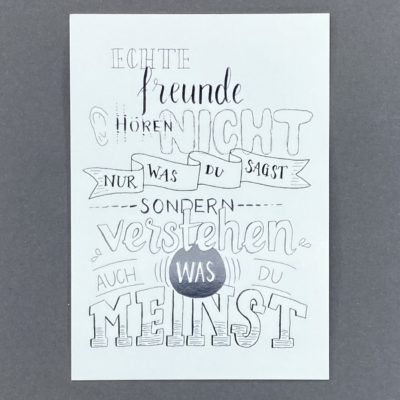 ECHTE
freunde
HÖREN NICHT
NUR WAS DU SAGST
SONDERN
verstehen
AUCH WAS DU
MEINST